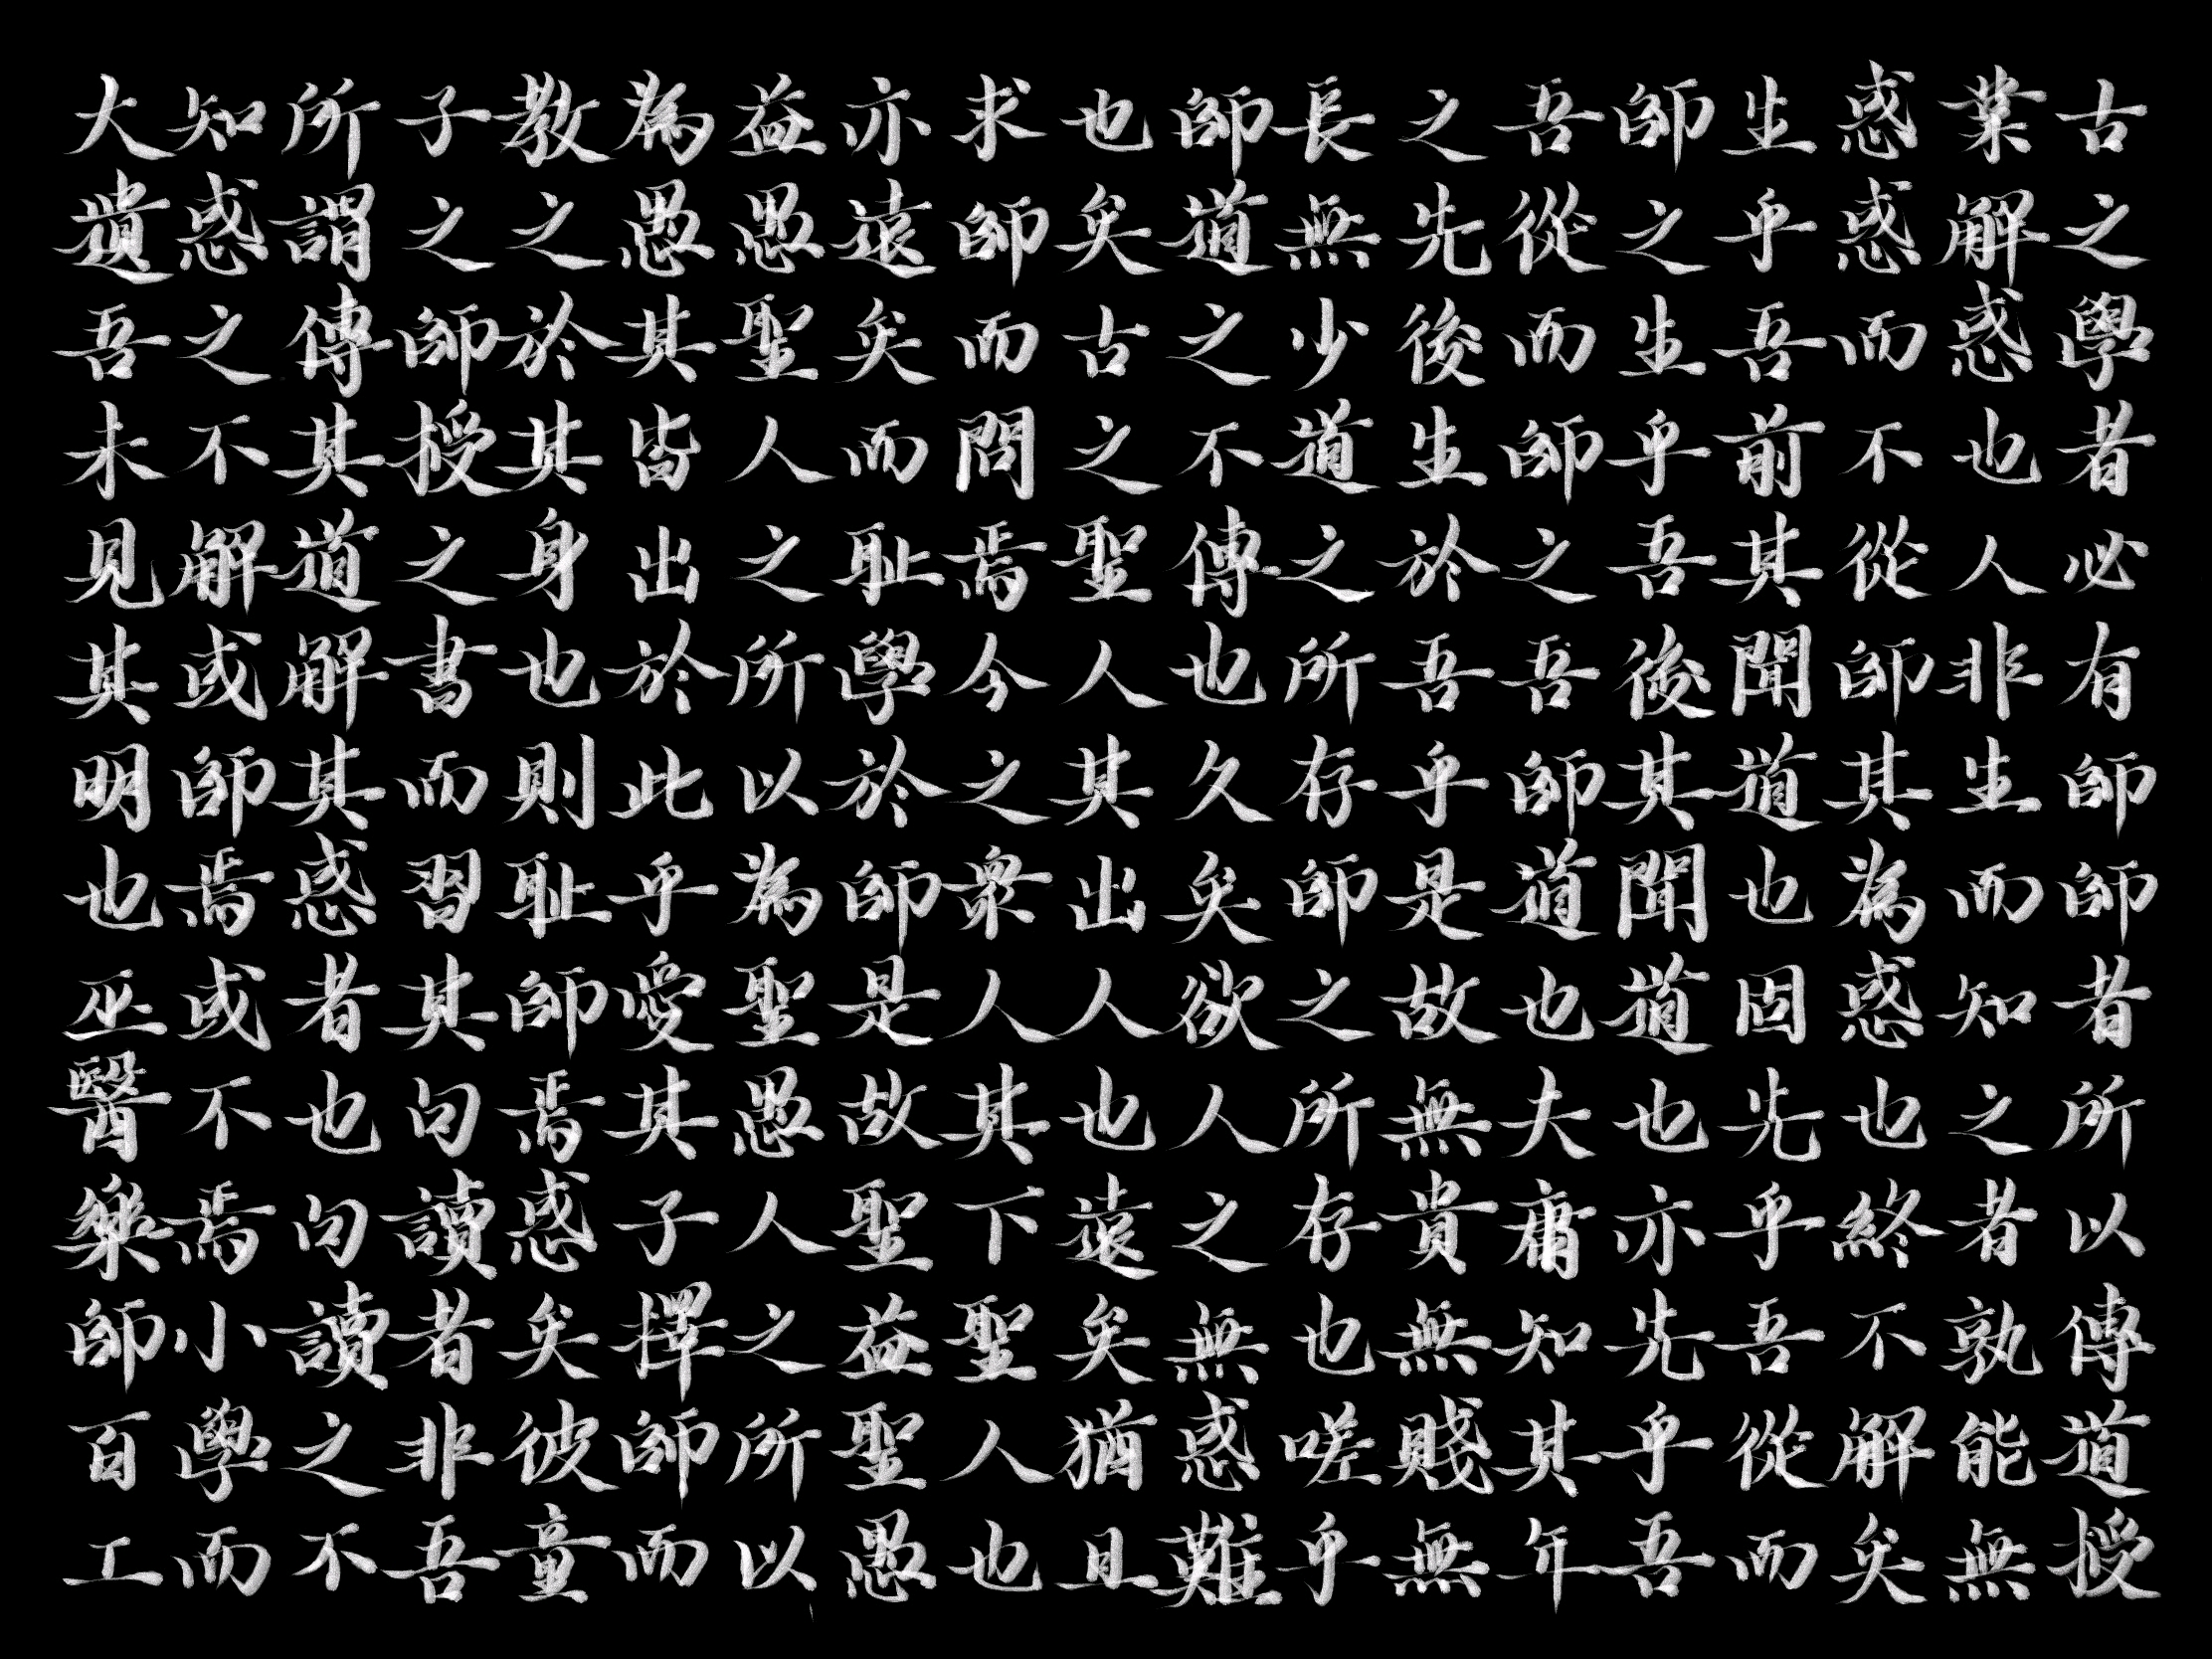 古之學者必有師師者所以傳道授
業解惑也人非生而知之者孰能無
惑惑而不從師其為惑也終不解矣
生乎吾前其聞道也固先乎吾從而
師之生乎吾後其聞道也亦先乎吾
吾從而師之吾師道也夫庸知其年
之先後生於吾乎是故無貴無賤無
長無少道之所存師之所存也嗟乎
師道之不傳也久矣欲人之無惑難
也矣古之聖人其出人也遠矣猶且
求師而問焉今之衆人其下聖人也
亦遠矣而耻學於師是故聖益聖愚
益愚聖人之所以為聖愚人之所以
為愚其皆出於此乎愛其子擇師而
教之於其身也則耻師焉惑矣彼童
子之師授之書而習其句讀者非吾
所謂傳其道解其惑者也句讀之不
知惑之不解或師焉或不焉小學而
大遺吾未見其明也巫醫樂師百工